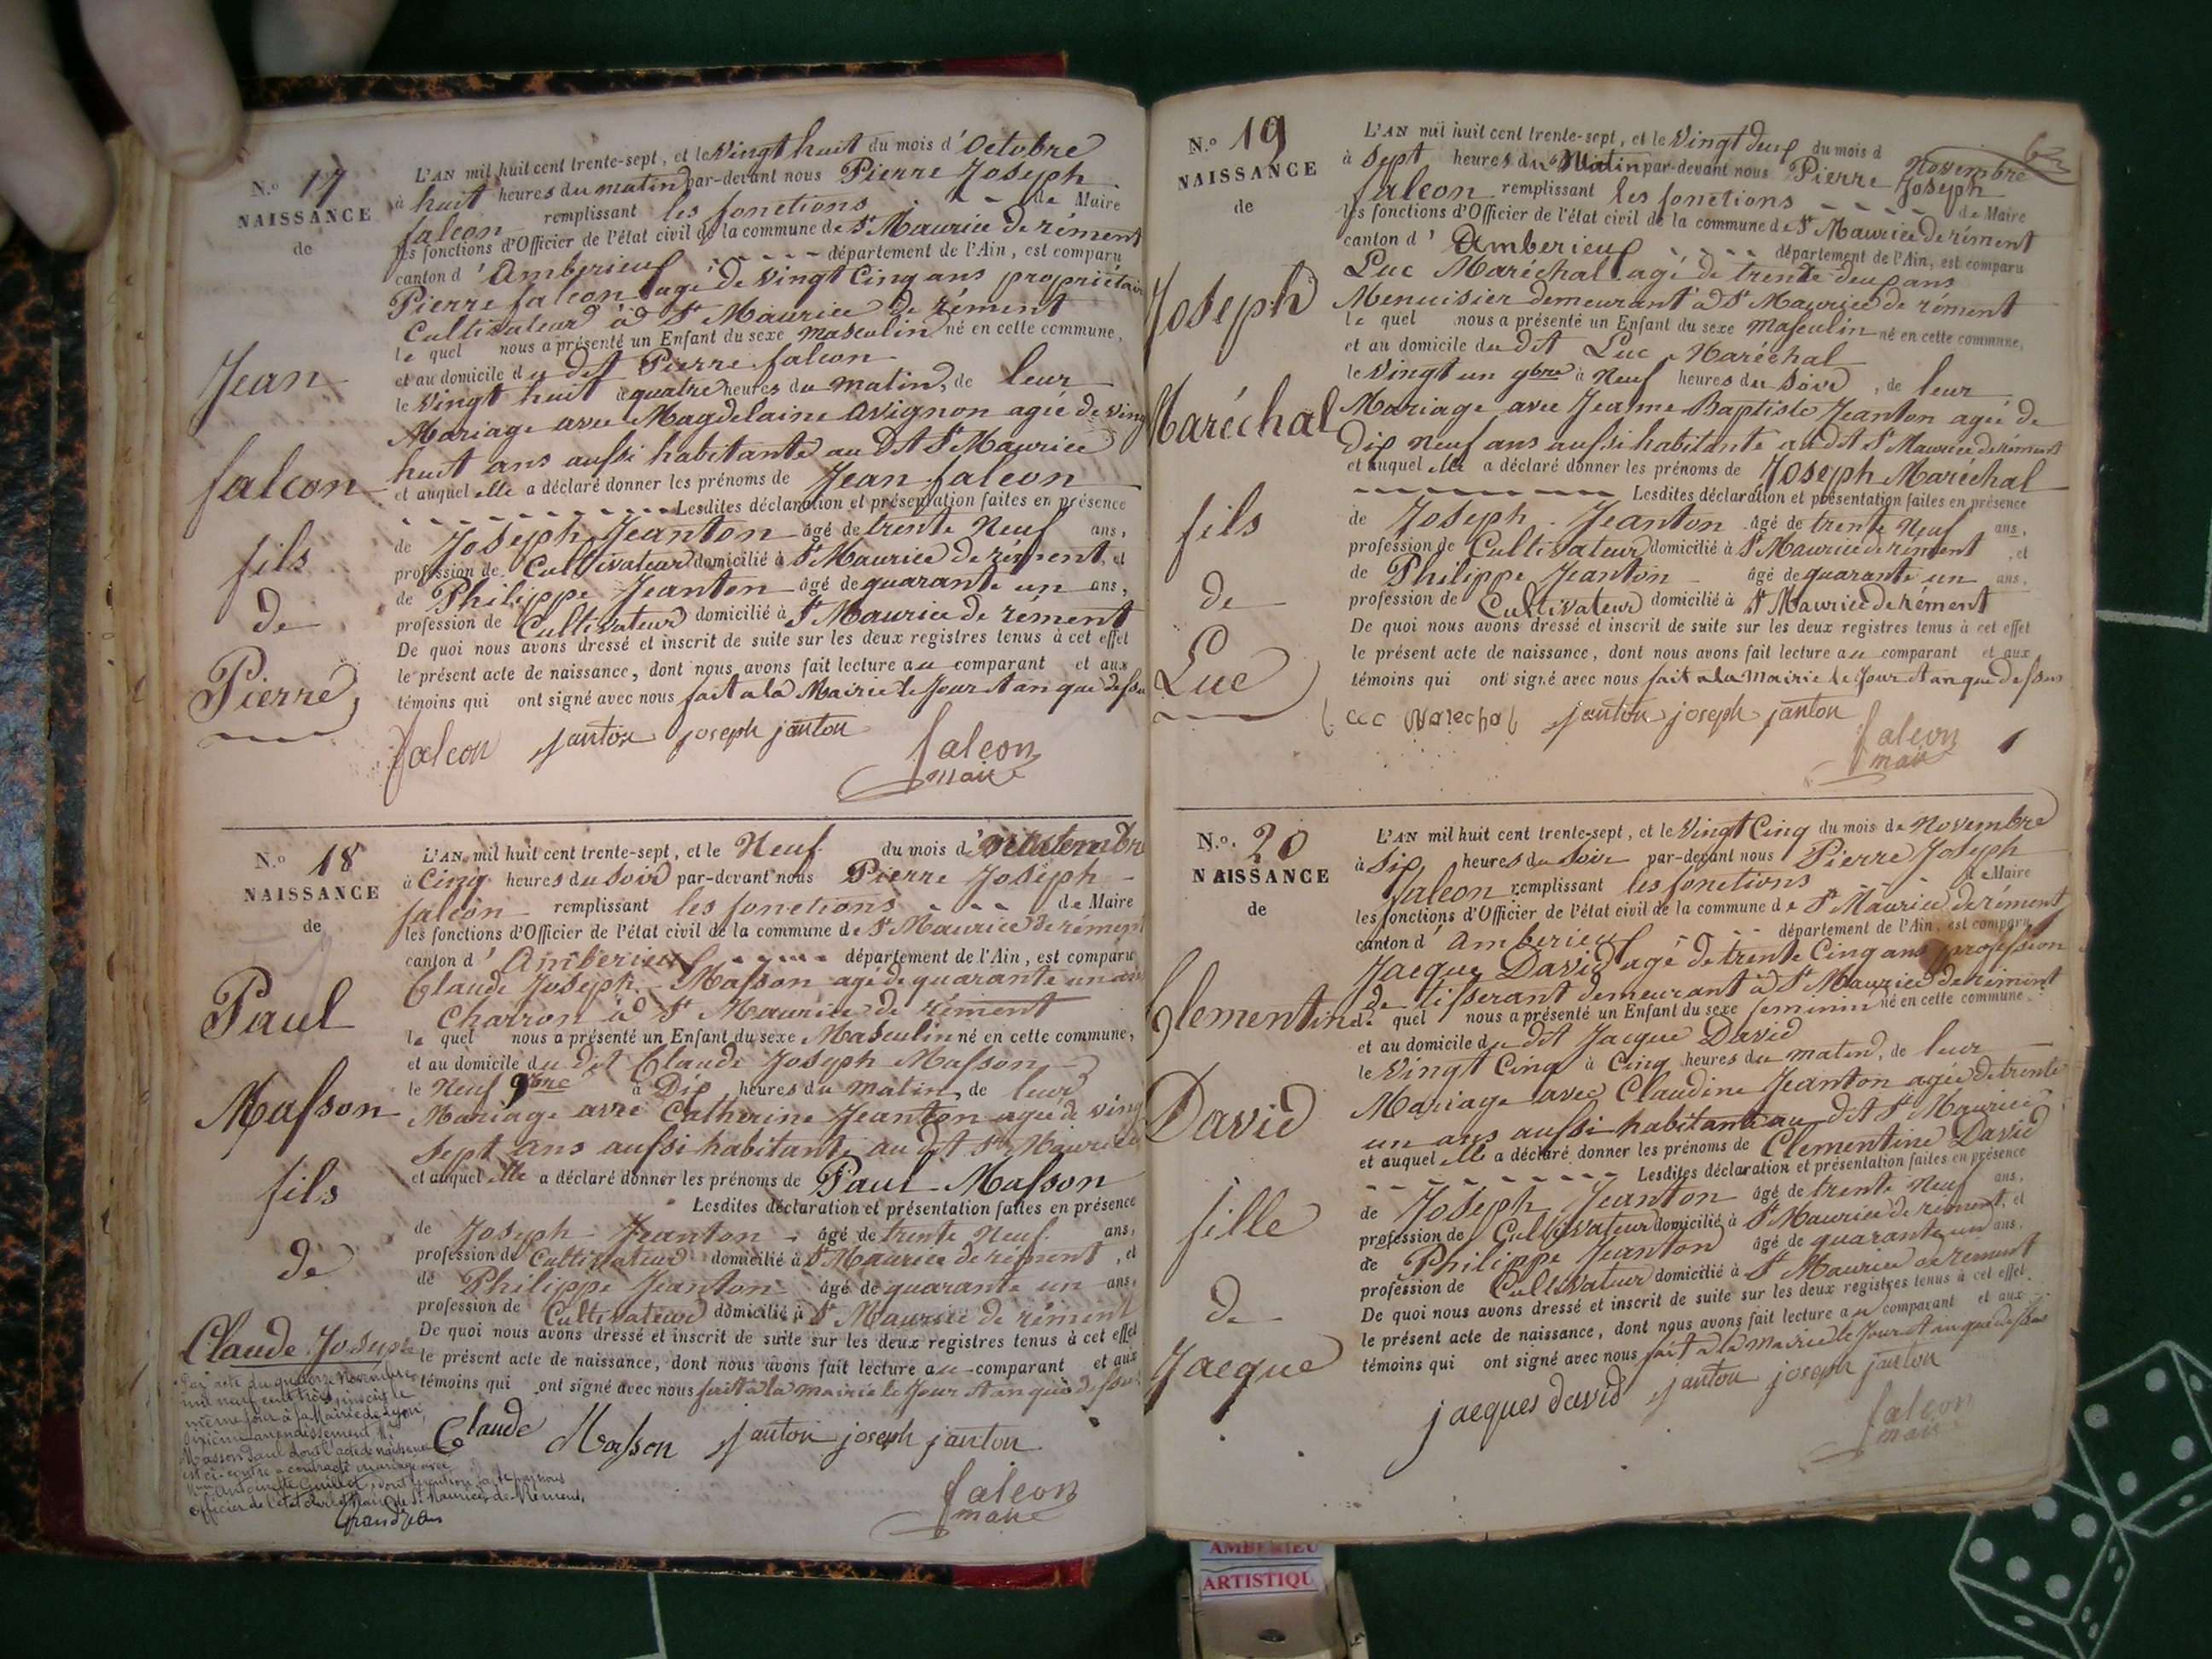 N.o 17
NAISSANCE
de
Jean
falcon
fils
de
Pierre
L'AN mil huit cent trente-sept, et le Vingt huit du mois d'Octobre
à huit heures du matin par-devant nous Pierre Joseph
falcon remplissant les fonctions de Maire
les fonctions d'Officier de l'état civil de la commune de St Maurice de rément
canton d'Amberieux département de l'Ain, est comparu
Pierre falcon agé de Vingt Cinq ans propriétaire
Cultivateur à St Maurice de rément
le quel nous a présenté un Enfant du sexe masculin né en cette commune,
et au domicile du dit Pierre falcon
le Vingt huit à quatre heures du matin, de leur
Mariage avec Magdelaine Avignon agée de Vingt
huit ans aussi habitante au dit St Maurice
et auquel elle a déclaré donner les prénoms de Jean falcon
Lesdites déclaration et présentation faites en présence
de Joseph Jeanton âgé de trente Neuf ans,
profession de Cultivateur domicilié à St Maurice de rément, et
de Philippe Jeanton âgé de quarante un ans,
profession de Cultivateur domicilié à St Maurice de rément
De quoi nous avons dressé et inscrit de suite sur les deux registres tenus à cet effet
le présent acte de naissance, dont nous avons fait lecture au comparant et aux
témoins qui ont signé avec nous fait a la Mairie le Jour et an que dessu
falcon janton joseph janton
falcon
maire
N.o 18
NAISSANCE
de
Paul
Masson
fils
de
Claude Joseph
L'AN mil huit cent trente-sept, et le Neuf du mois d'
à Cinq heures du Soir par-devant nous Pierre Joseph
falcon remplissant les fonctions de Maire
les fonctions d'Officier de l'état civil de la commune de St Maurice de rément
canton d'Amberieux département de l'Ain, est comparu
Claude Joseph Masson agé de quarante un ans
Charron à St Maurice de rément
le quel nous a présenté un Enfant du sexe Masculin né en cette commune,
et au domicile du dit Claude Joseph Masson
le Neuf 9bre à Dix heures du matin de leur
Mariage avec Catherine Jeanton agée de vingt
sept ans aussi habitante au dit St Maurice
et auquel elle a déclaré donner les prénoms de Paul Masson
Lesdites déclaration et présentation faites en présence
de Joseph Jeanton âgé de trente Neuf ans,
profession de Cultivateur domicilié à St Maurice de rément, et
de Philippe Jeanton âgé de quarante un ans,
profession de Cultivateur domicilié à St Maurice de rément
De quoi nous avons dressé et inscrit de suite sur les deux registres tenus à cet effet
le présent acte de naissance, dont nous avons fait lecture au comparant et aux
témoins qui ont signé avec nous fait à la mairie le Jour et an que dessus
Claude Masson janton joseph janton
falcon
maire
Par acte du quatorze Novembre
mil neuf cent trois, inscrit le
même jour à la Mairie de Lyon,
arrondissement, Mr
Masson Paul dont l'acte de naissance
est ci-contre a contracté mariage avec
Antoinette Guillot, dont mention faite par nous
officier de l'état civil Maire de St Maurice-de-Rémens.
N.o 19
NAISSANCE
de
Joseph
Maréchal
fils
de
Luc
L'AN mil huit cent trente-sept, et le Vingt deux du mois d Novembre
à Sept heures du Matin par-devant nous Pierre Joseph
falcon remplissant les fonctions de Maire
les fonctions d'Officier de l'état civil de la commune de St Maurice de rément
canton d'Amberieux département de l'Ain, est comparu
Luc Maréchal agé de trente deux ans
Menuisier demeurant à St Maurice de rément
le quel nous a présenté un Enfant du sexe Masculin né en cette commune,
et au domicile du dit Luc Maréchal
le Vingt un 9bre à Neuf heures du Soir, de leur
Mariage avec Jeanne Baptiste Jeanton agée de
Dix neuf ans aussi habitante au dit St Maurice de rément
et auquel elle a déclaré donner les prénoms de Joseph Maréchal
Lesdites déclaration et présentation faites en présence
de Joseph Jeanton âgé de trente Neuf ans,
profession de Cultivateur domicilié à St Maurice de rément, et
de Philippe Jeanton âgé de quarante un ans,
profession de Cultivateur domicilié à St Maurice de rément
De quoi nous avons dressé et inscrit de suite sur les deux registres tenus à cet effet
le présent acte de naissance, dont nous avons fait lecture au comparant et aux
témoins qui ont signé avec nous fait a la mairie le Jour et an que dessus
Luc Marechal janton joseph janton
falcon
maire
N.o 20
NAISSANCE
de
Clementine
David
fille
de
Jacque
L'AN mil huit cent trente-sept, et le Vingt Cinq du mois de Novembre
à Six heures du Soir par-devant nous Pierre Joseph
falcon remplissant les fonctions de Maire
les fonctions d'Officier de l'état civil de la commune de St Maurice de rément
canton d'Amberieux département de l'Ain, est comparu
Jacque David agé de trente Cinq ans profession
de tisserant demeurant à St Maurice de rément
le quel nous a présenté un Enfant du sexe feminin né en cette commune
et au domicile du dit Jacque David
le Vingt Cinq à Cinq heures du matin, de leur
Mariage avec Claudine Jeanton agée de trente
un ans aussi habitante au dit St Maurice
et auquel elle a déclaré donner les prénoms de Clementine David
Lesdites déclaration et présentation faites en présence
de Joseph Jeanton âgé de trente Neuf ans,
profession de Cultivateur domicilié à St Maurice de rément, et
de Philippe Jeanton âgé de quarante un ans,
profession de Cultivateur domicilié à St Maurice de rément
De quoi nous avons dressé et inscrit de suite sur les deux registres tenus à cet effet
le présent acte de naissance, dont nous avons fait lecture au comparant et aux
témoins qui ont signé avec nous fait à la mairie le Jour et an que dessus
jacques david janton joseph janton
falcon
maire
AMBERIEU
ARTISTIQU